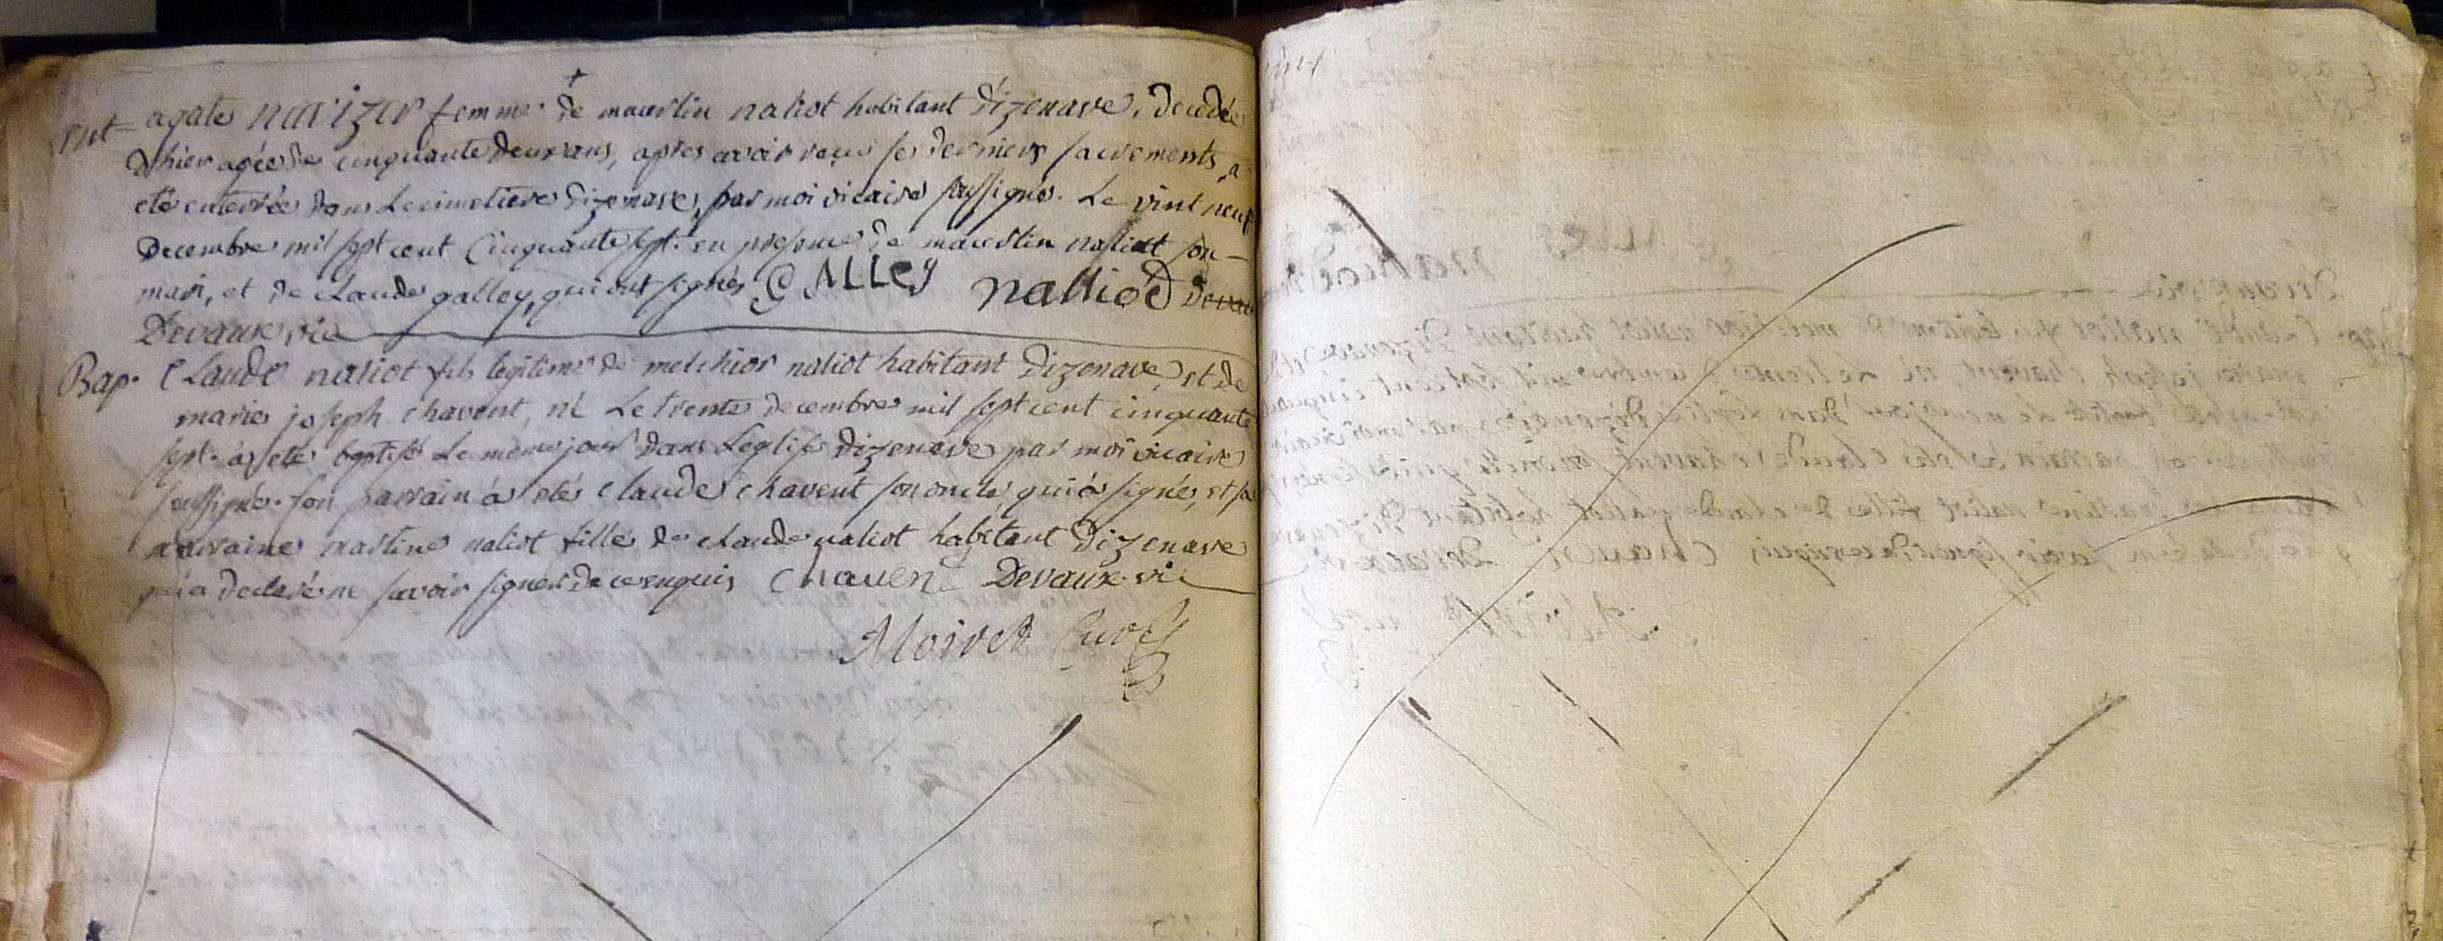 Ent agate navizer femme de maurlin naliot habitant dizenave, decedée
d'hier agée de cinquante deux ans, apres avoir reçu ses derniers sacrements, a
eté enterrée dans le cimetiere dizenave, par moi vicaire soussigné. Le vint neuf
Decembre mil sept cent cinquante sept. en presence de maurlin naliot son
mari, et de claude galley, qui ont signés GALLEY nalliod
Devaux vic
Bap. Claude naliot fils legitime de melchior naliot habitant dizenave, et de
marie joseph chavent, né le trente decembre mil sept cent cinquante
sept. à eté baptisé le meme jour dans l'eglise dizenave par moi vicaire
soussigné. son parrain à eté claude chavent son oncle, qui à signé, et sa
marraine martine naliot fille de claude naliot habitant dizenave
qui a declaré ne savoir signer de ce enquis chavent Devaux vic
Moiret Curé